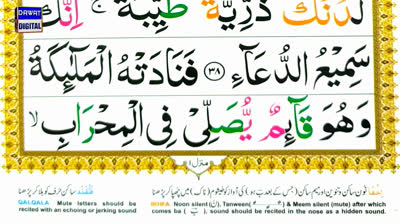 DAWAT
DIGITAL
لَّدُنْكَ ذُرِّيَّةً طَيِّبَةً ۚ اِنَّكَ
سَمِيْعُ الدُّعَآءِ ﴿٣٨﴾ فَنَادَتْهُ الْمَلٰٓئِكَةُ
وَهُوَ قَآئِمٌ يُّصَلِّيْ فِى الْمِحْرَابِ ۙ
منزل ١
QALQALA Mute letters should be
recited with an echoing or jerking sound
Noon silent (نْ), Tanween & Meem silent (mute) after which
comes ba (ب), sound should be recited in the nose as a hidden sound.